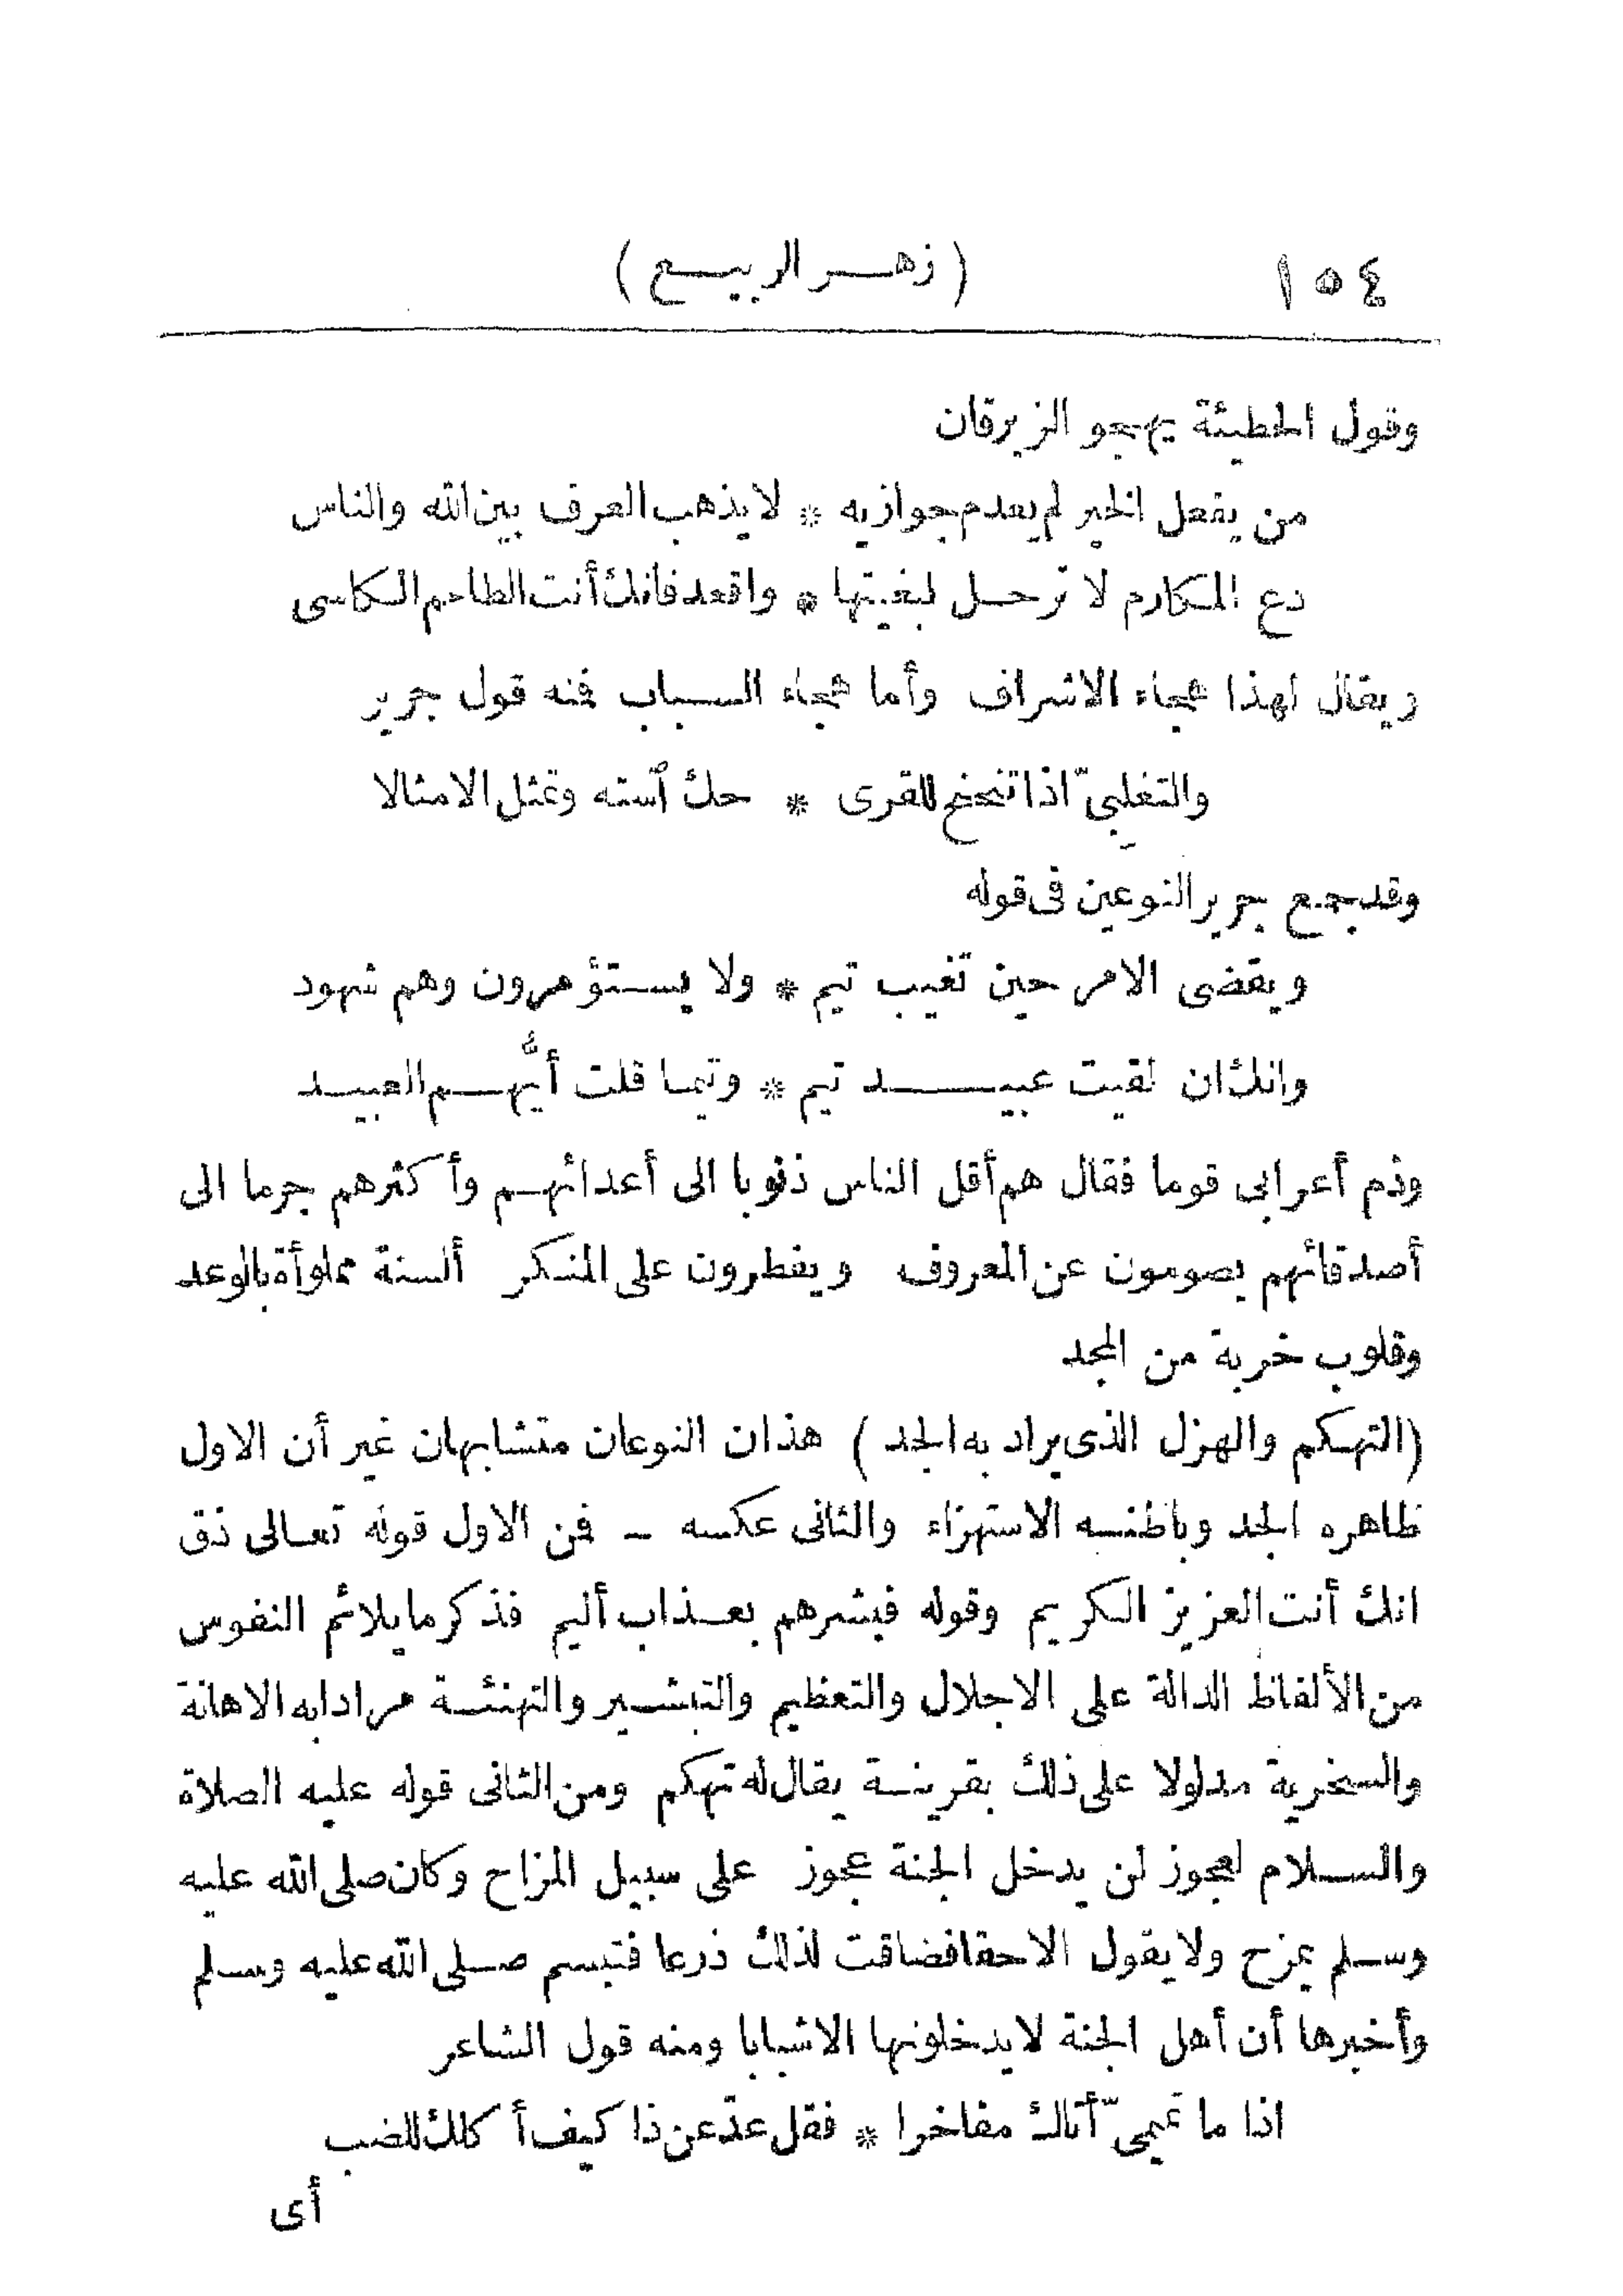 ١٥٤ (زهر الربيع)
وقول الحطيئة يهجو الزبرقان
من يفعل الخير لم يعدم جوازيه * لا يذهب العرف بين الله والناس
دع المكارم لا ترحل لبغيتها * واقعد فانك أنت الطاعم الكاسى
ويقال لهذا هجاء الاشراف وأما هجاء السباب فمنه قول جرير
والتغلبىّ اذا تنحنح للقرى * حك ٱسته وتمثل الامثالا
وقد جمع جرير النوعين فى قوله
ويقضى الامر حين تغيب تيم * ولا يستؤمرون وهم شهود
وانك ان لقيت عبيد تيم * وتيما قلت أيُّهم العبيد
وذم أعرابى قوما فقال هم أقل الناس ذنوبا الى أعدائهم وأكثرهم جرما الى
أصدقائهم يصومون عن المعروف ويفطرون على المنكر ألسنة مملوأة بالوعد
وقلوب خربة من المجد
(التهكم والهزل الذى يراد به الجد) هذان النوعان متشابهان غير أن الاول
ظاهره الجد وباطنه الاستهزاء والثانى عكسه ـ فمن الاول قوله تعالى ذق
انك أنت العزيز الكريم وقوله فبشرهم بعذاب أليم فذكر ما يلائم النفوس
من الألفاظ الدالة على الاجلال والتعظيم والتبشير والتهنئة مرادا به الاهانة
والسخرية مدلولا على ذلك بقرينة يقال له تهكم ومن الثانى قوله عليه الصلاة
والسلام لعجوز لن يدخل الجنة عجوز على سبيل المزاح وكان صلى الله عليه
وسلم يمزح ولا يقول الا حقا فضاقت لذلك ذرعا فتبسم صلى الله عليه وسلم
وأخبرها أن أهل الجنة لا يدخلونها الا شبابا ومنه قول الشاعر
اذا ما تميمىّ أتاك مفاخرا * فقل عدّ عن ذا كيف أكلك للضب
أى